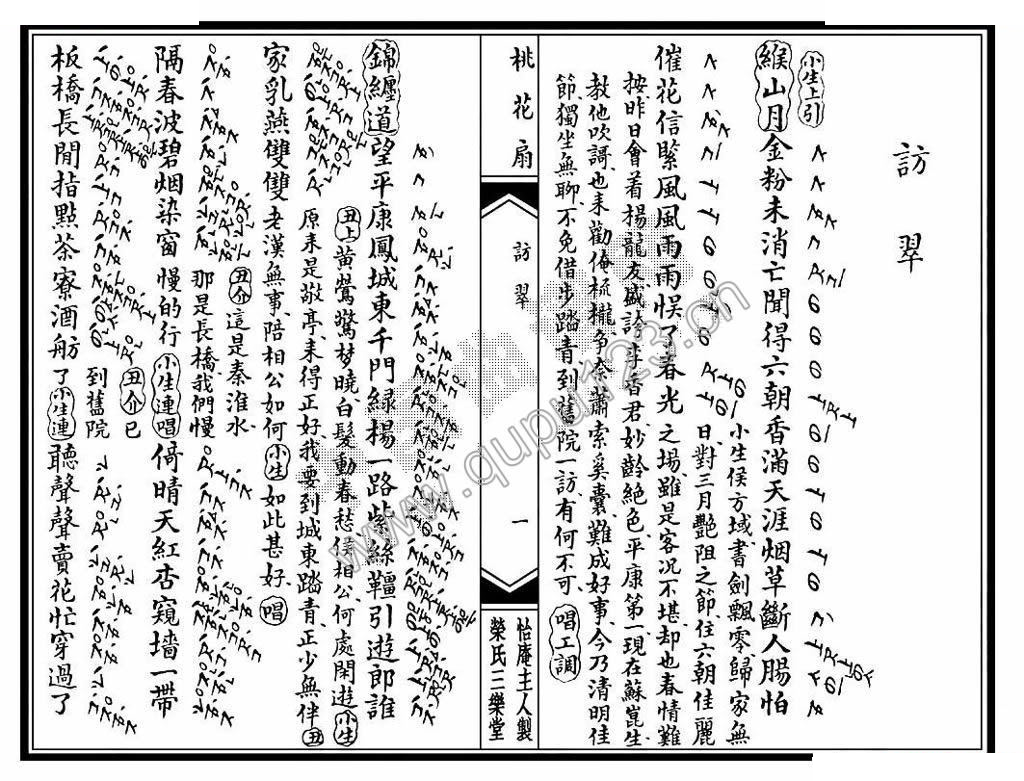 訪翠
小生上引
緱山月 金粉未消亡聞得六朝香滿天涯烟草斷人腸怕
催花信緊風風雨雨悞了春光
小生侯方域、書劍飄零、歸家無
日、對三月艷阳之節、住六朝佳麗
之場、雖是客况不堪、却也春情難
按、昨日會着楊龍友、盛誇李香君、妙齡絕色、平康第一、現在蘇崑生
教他吹謌、也来勸俺梳櫳、争奈蕭索奚囊、難成好事、今乃清明佳
節、獨坐無聊、不免借步踏青、到舊院一訪、有何不可、 唱工調
桃花扇
訪翠
一
怡庵主人製
榮氏三樂堂
錦纏道 望平康鳳城東千門綠楊一路紫絲韁引遊郎誰
丑上 黄鶯驚梦曉、白髮動春愁、侯相公何處閑遊、小生
原来是敬亭、来得正好、我要到城東踏青、正少無伴、丑
家乳燕雙雙 老漢無事、陪相公如何、小生 如此甚好、唱
丑介 這是秦淮水
隔春波碧烟染窗 那是長橋、我們慢
慢的行 小生連唱 倚晴天紅杏窺墻一帶
丑介 已
板橋長閒指點茶寮酒舫 到舊院
了 小生連 聽聲聲賣花忙穿過了
www.qupu123.cn